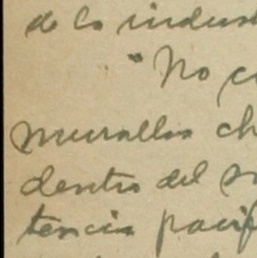 de la indus
"No c
murallas ch
dentro del s
tencia pacif